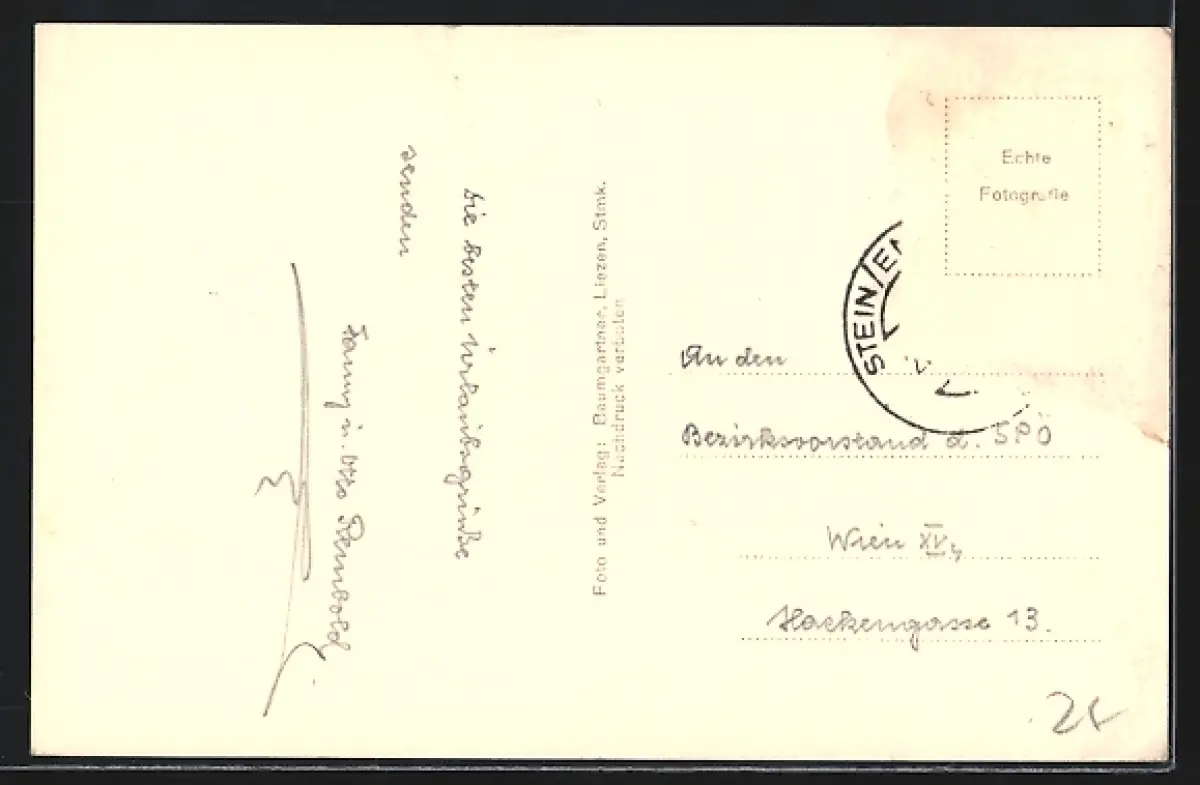 Die besten Urlaubsgrüße
senden
Fanny u. Otto Rembold
Foto und Verlag: Baumgartner, Liezen, Stmk.
Nachdruck verboten
Echte
Fotografie
STEIN/EN
An den
Bezirksvorstand d. SPÖ
Wien XV,
Hackengasse 13.